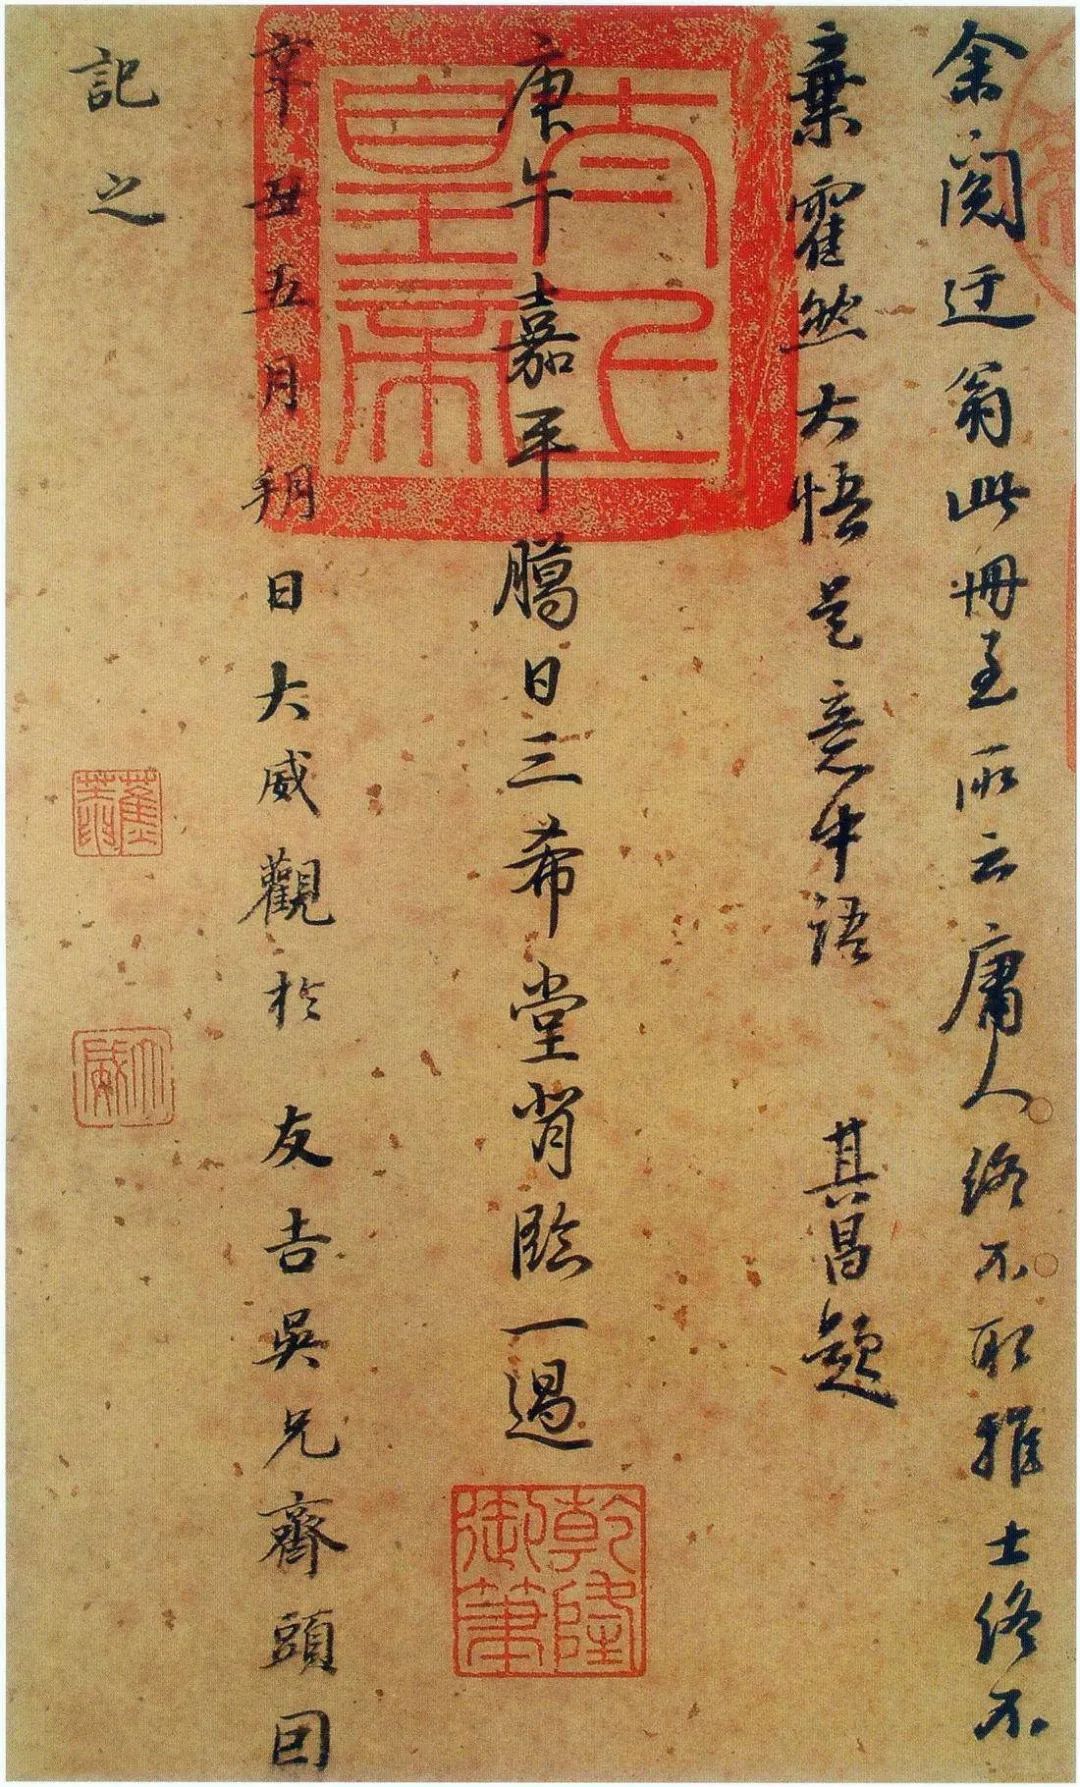 余閱迂翁此冊至所云庸人終不取雅士終不
棄霍然大悟是意中語 其昌題
庚午嘉平臈日三希堂背臨一過
辛丑五月朔日大威觀於 友吉吳兄齋頭囙
記之
太上皇帝
乾隆御筆
大威